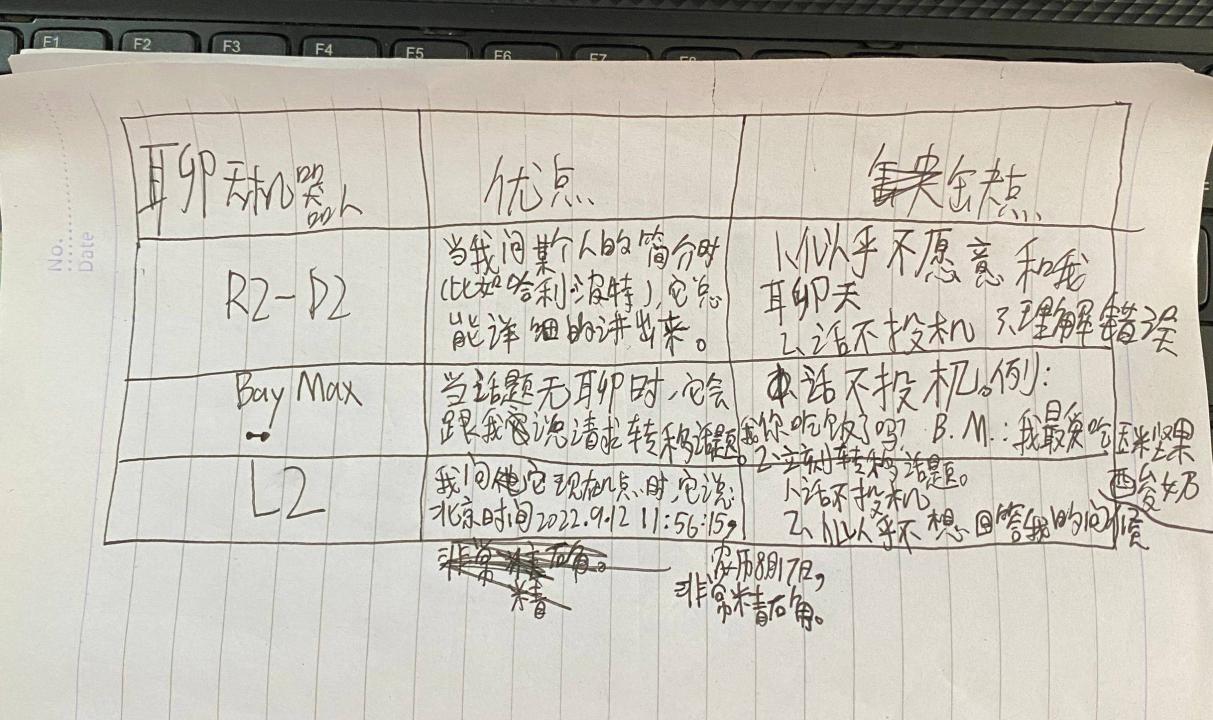 F1 F2 F3 F4 F5 F6 F7
No.
Date
聊天机器人 优点 缺点
R2-D2
当我问某个人的简介时
(比如哈利·波特),它总
能详细的讲出来。
1、似乎不愿意和我
聊天
2、话不投机 3、理解错误
BayMax
当话题无聊时,它会
跟我说请求转移话题。
1、话不投机。例:
我:你吃饭了吗? B.M.:我最爱吃玉米坚果
酸奶
2、立刻转移话题。
L2
我问它现在几点时,它说:
北京时间2022.9.12 11:56:15,
农历8月17日,
非常精确。
1、话不投机
2、似乎不想回答我的问题